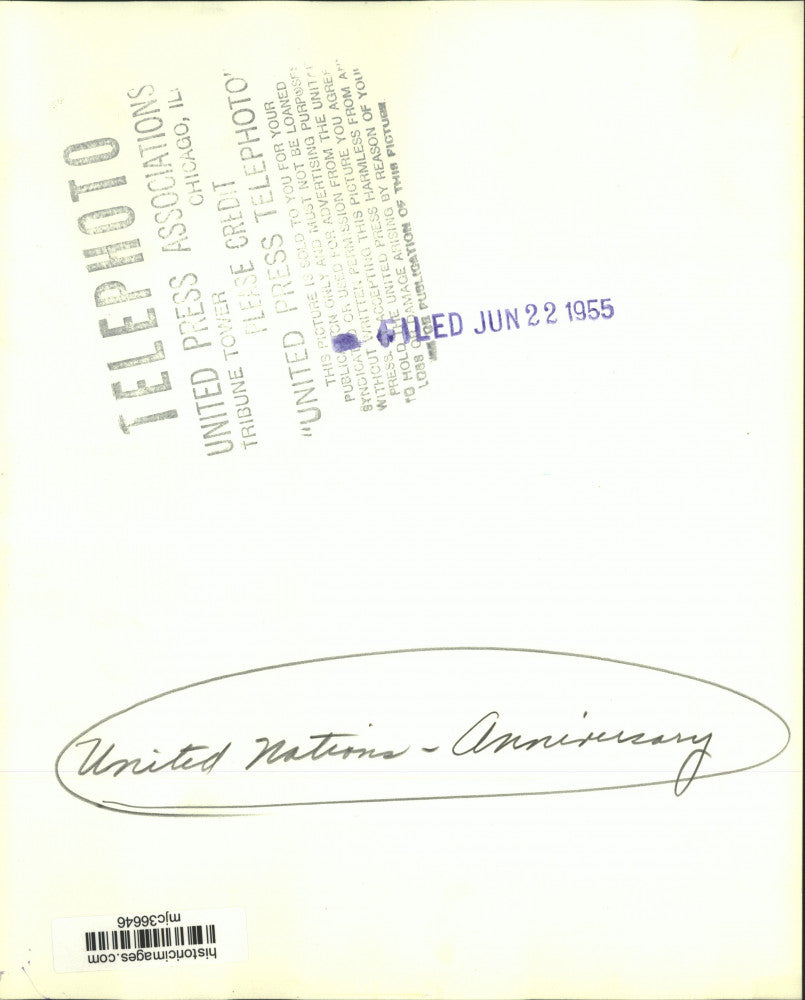 TELEPHOTO
UNITED PRESS ASSOCIATIONS
TRIBUNE TOWER CHICAGO, ILL
PLEASE CREDIT
"UNITED PRESS TELEPHOTO"
THIS PICTURE IS SOLD TO YOU FOR YOUR
PUBLICATION ONLY AND MUST NOT BE LOANED
SYNDICATED OR USED FOR ADVERTISING PURPOSES
WITHOUT WRITTEN PERMISSION FROM THE UNITED
PRESS. IN ACCEPTING THIS PICTURE YOU AGREE
TO HOLD THE UNITED PRESS HARMLESS FROM ANY
LOSS OR DAMAGE ARISING BY REASON OF YOUR
USE OR PUBLICATION OF THIS PICTURE
FILED JUN 22 1955
United Nations - Anniversary
historicimages.com
mjc36646